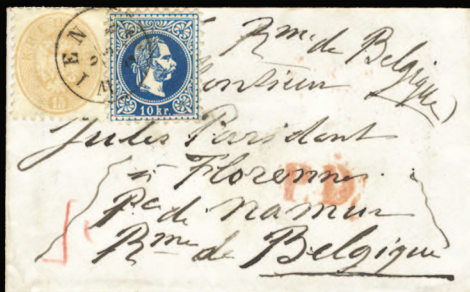 WIEN
15
10 kr.
Rme de Belgique)
Monsieur
Jules Paridant
à Florenne
P.D.
Pce de Namur
Rme de Belgique